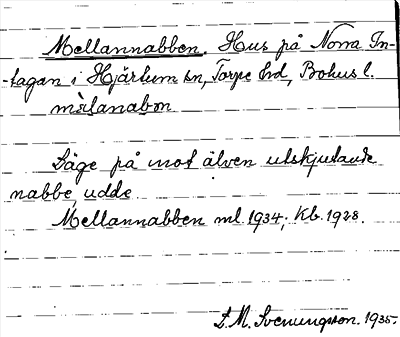 Mellannabben. Hus på Norra In-
-tagan i Hjärtum sn, Torpe hd, Bohus l.
mèlanabon
Läge på mot älven utskjutande
nabbe, udde.
Mellannabben ml. 1934; Kb. 1928.
S. M. Svenungsson. 1935.